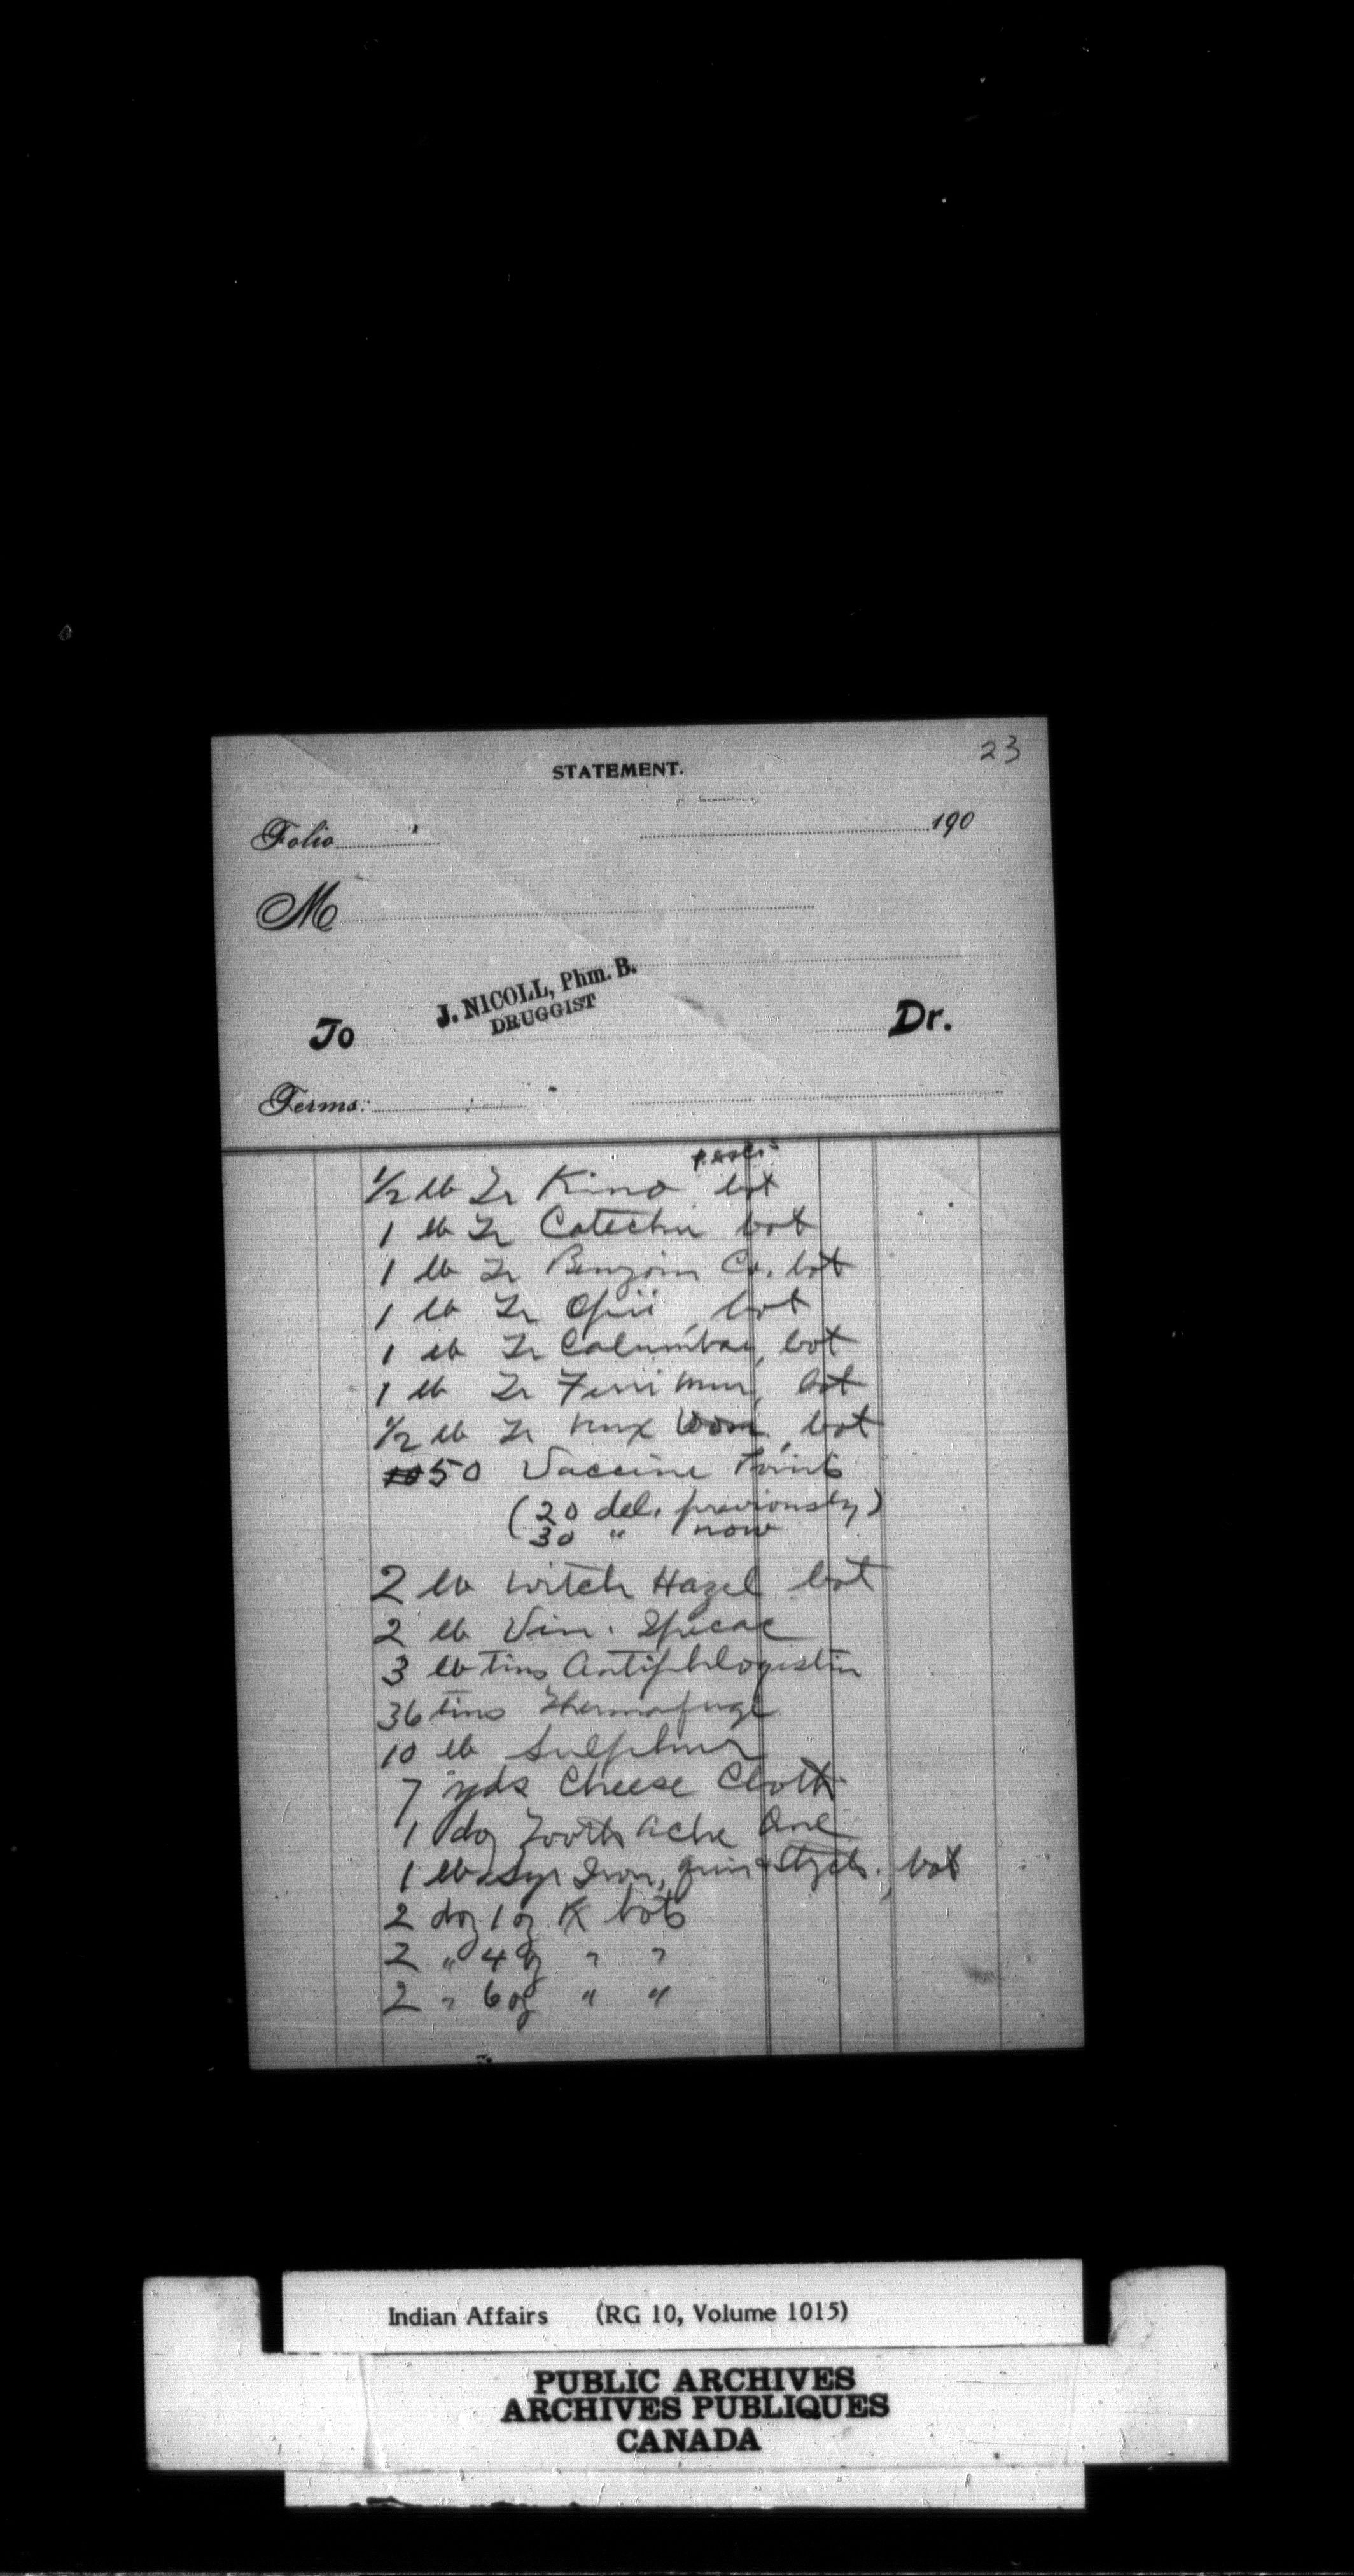 23
STATEMENT.
Folio 190
M
J. NICOLL, Phm. B.
DRUGGIST
To Dr.
Terms:
1/2 lb Tr Kino bot
1 lb Tr Catechu bot
1 lb Tr Benzoin Co. bot
1 lb Tr Opii, bot
1 lb Tr Calumbae, bot
1 lb Tr Ferri Mur, bot
1/2 lb Tr Nux Vom, bot
50 Vaccine Points
(20 del. previously)
30 " now
2 lb Witch Hazel bot
2 lb Vin. Ipecac
3 lb tins Antiphlogistin
36 tins Thermofuge
10 lb Sulphur
7 yds Cheese Cloth
1 doz Tooth Ache
1 lb Syr Iron, Quin & Strych., bot
2 doz 1 oz K bots
2 " 4 oz " "
2 " 6 oz " "
Indian Affairs (RG 10, Volume 1015)
PUBLIC ARCHIVES
ARCHIVES PUBLIQUES
CANADA